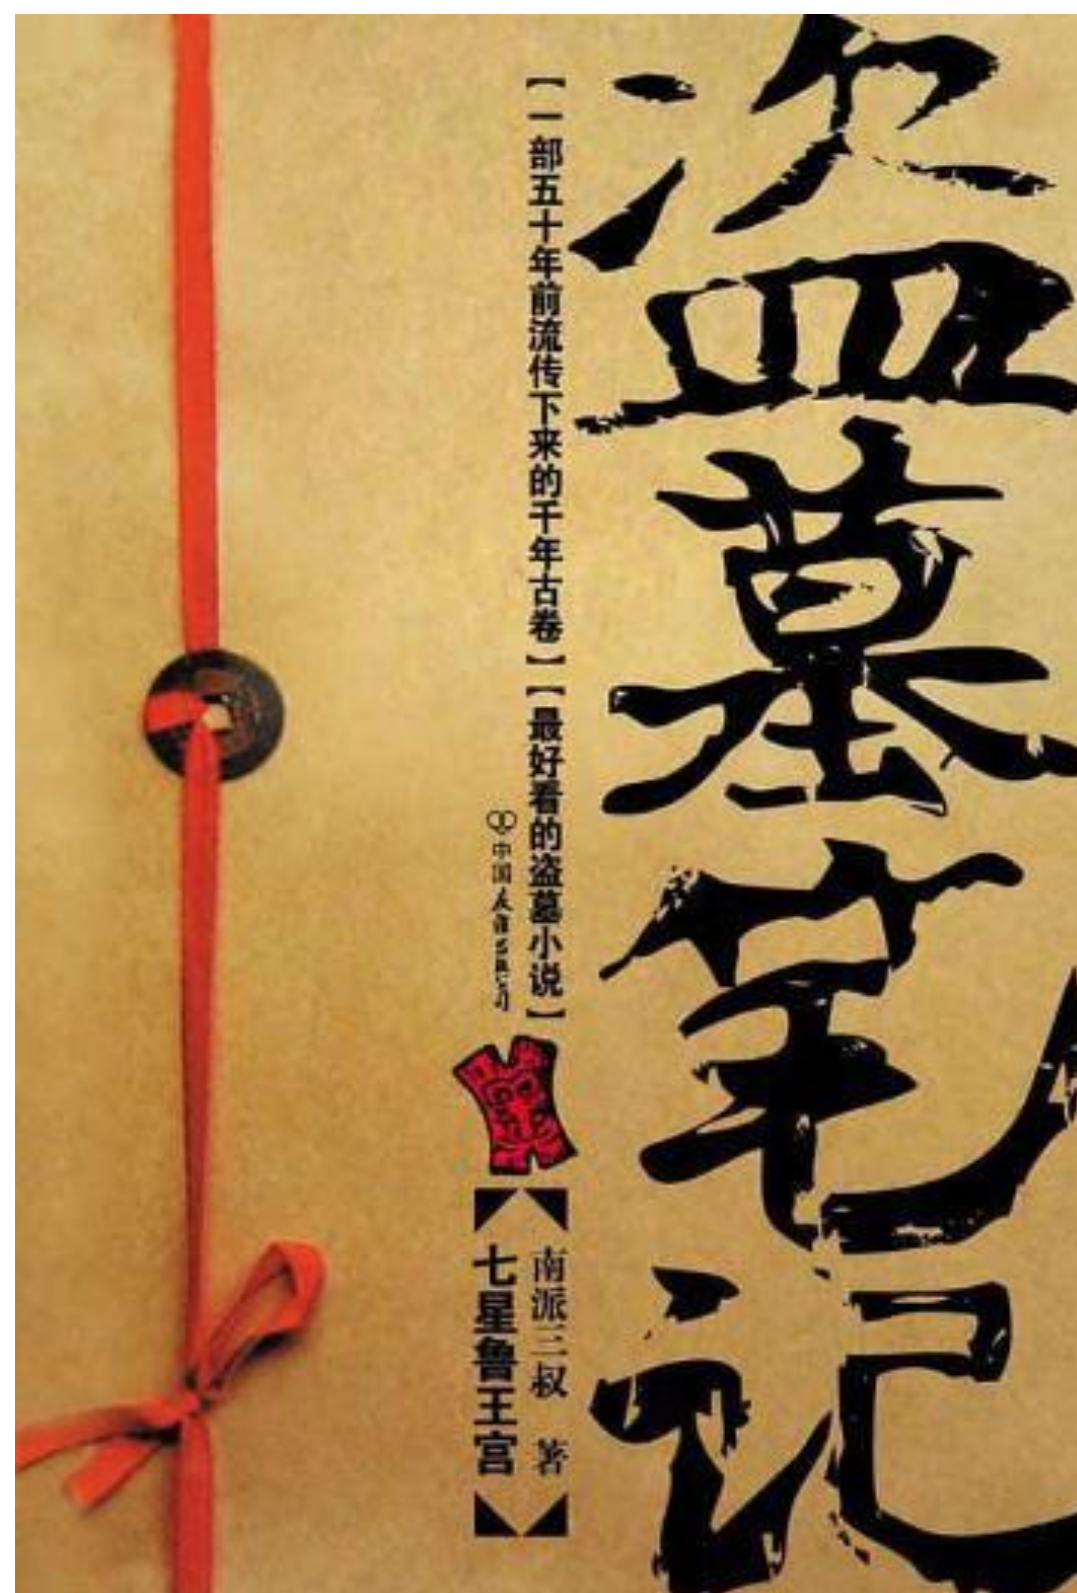 盗墓笔记
【一部五十年前流传下来的千年古卷】【最好看的盗墓小说】
中国友谊出版公司
南派三叔 著
七星鲁王宫